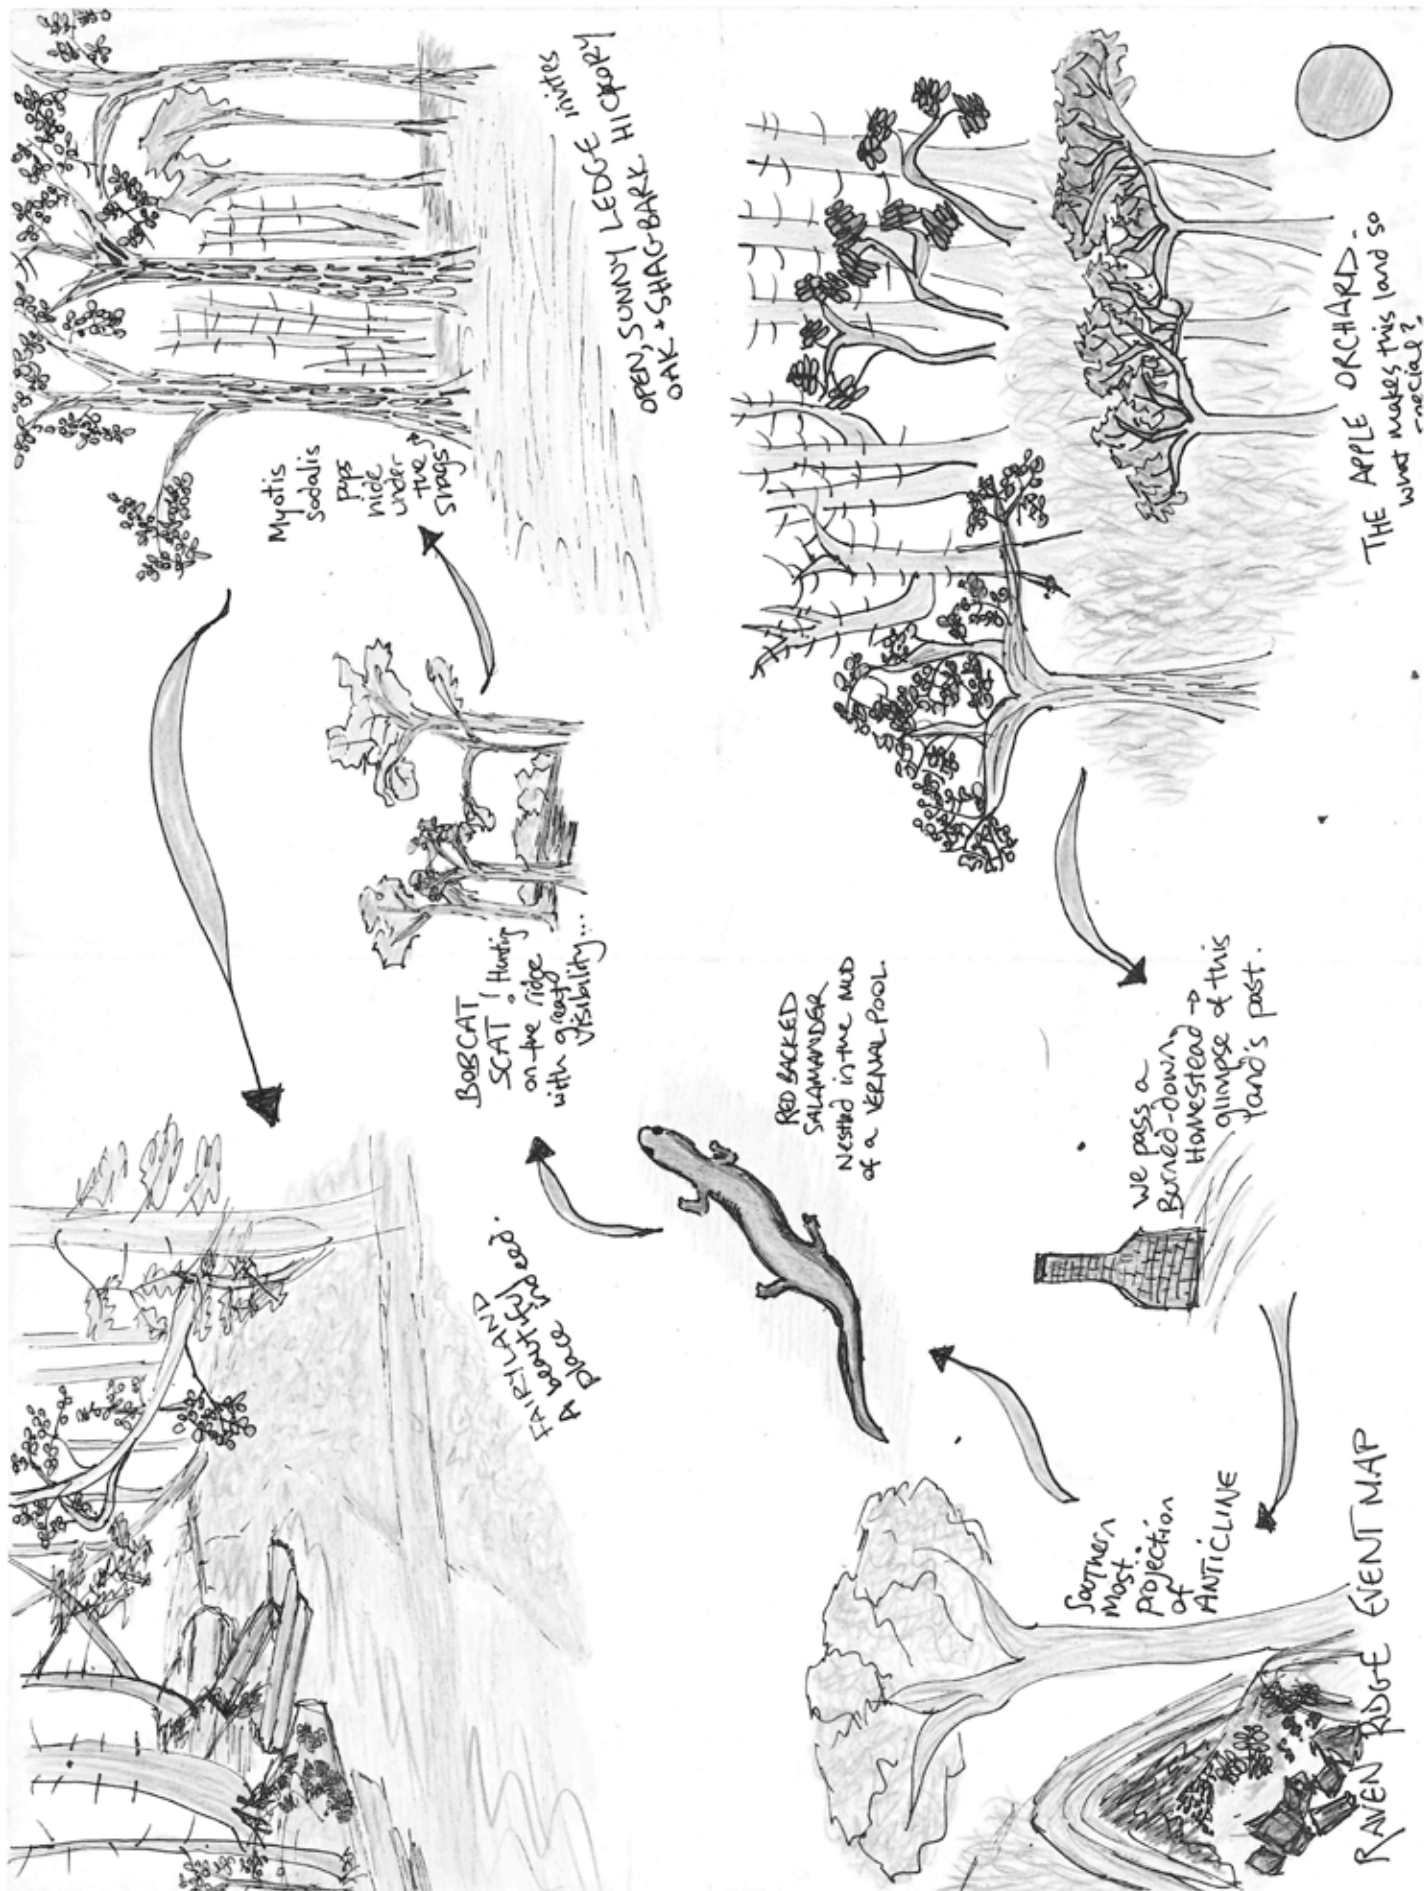 THE APPLE ORCHARD-
what makes this land so
special?
we pass a
Burned-down
Homestead →
glimpse of this
land's past.
Southern
most
projection
of
ANTICLINE
RED BACKED
SALAMANDER
Nestled in the MUD
of a VERNAL POOL.
BOBCAT
SCAT! Hunting
on the ridge
with great
visibility...
Myotis
sodalis
pups
hide
under
the
snags
OPEN, SUNNY LEDGE invites
OAK + SHAG-BARK HICKORY
FAIRYLAND
A beautiful
place indeed.
RAVEN RIDGE EVENT MAP